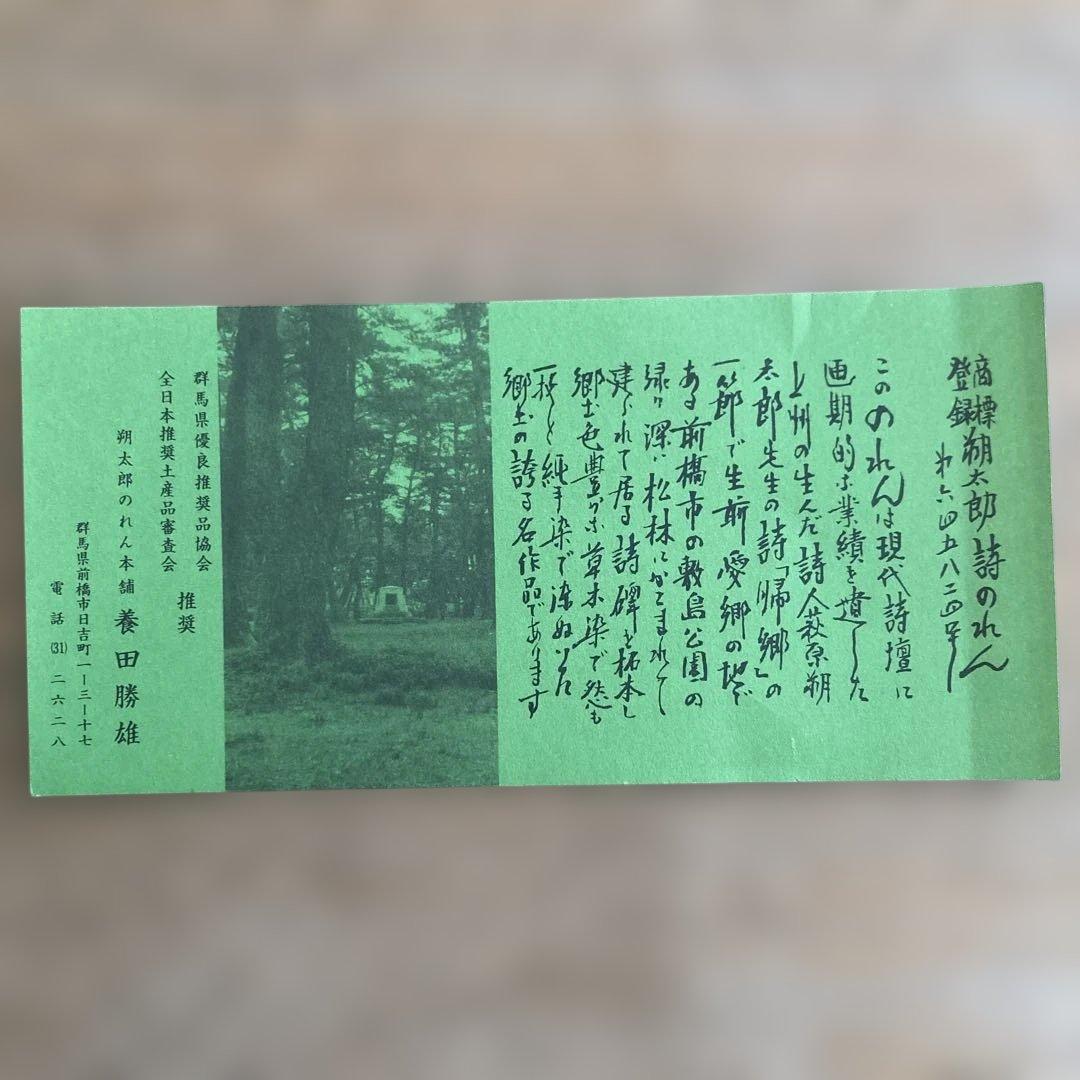 商標登録 朔太郎詩のれん
第六四五八二四号
こののれんは現代詩壇に
画期的な業績を遺した
上州の生んだ詩人萩原朔
太郎先生の詩「帰郷」の
一節で生前愛郷の地で
ある前橋市の敷島公園の
緑り深い松林にかこまれて
建られて居る詩碑を拓本し
郷土色豊かな草木染で然も
一枚と純手染で染ぬいた
郷土の誇る名作品であります
群馬県優良推奨品協会
全日本推奨土産品審査会
推奨
朔太郎のれん本舗 養田勝雄
群馬県前橋市日吉町一ー三ー十七
電話(31)二六二八